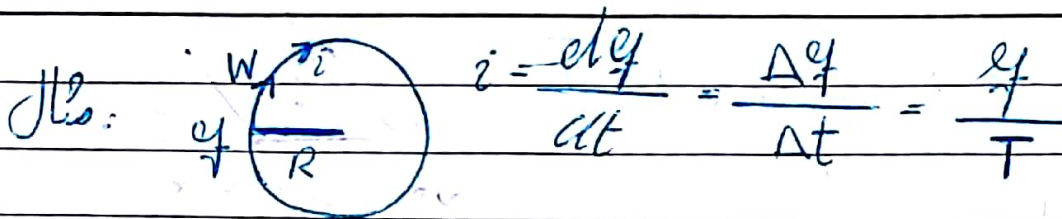 W i
q R
i = dq/dt = Δq/Δt = q/T